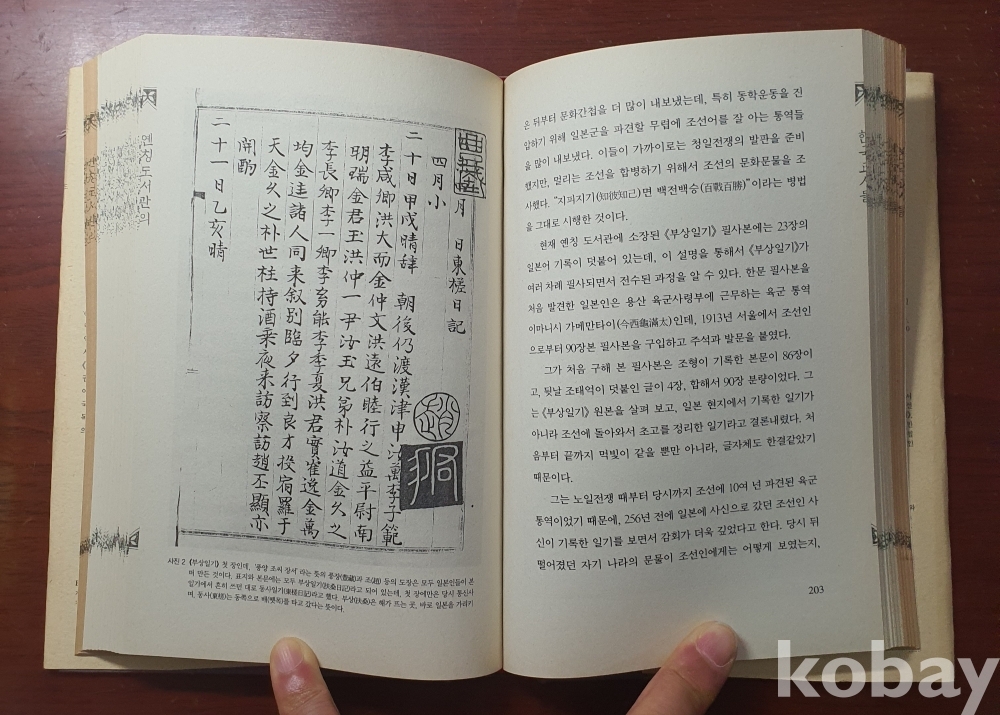 옌칭도서관의
日東槎日記
四月小
二十日甲戌晴辞 朝後仍渡漢津申汝萬李子範
李咸卿洪大而金仲文洪遠伯睦行之益平尉南
明瑞金君玉洪仲一尹汝玉兄弟朴汝道金久之
李長卿李一卿李多能李季夏洪君實崔逸金萬
均金逵諸人同来叙别臨夕行到良才投宿羅子
天金久之朴世柱持酒乘夜来訪察訪趙丕顯亦
開酌
二十一日乙亥晴
사진 2 《부상일기》 첫 장인데, '풍양 조씨 장서'라는 뜻의 풍장(豊藏)과 조(趙) 등의 도장은 모두 일본인들이 본
떠 만든 것이다. 표지와 본문에는 모두 부상일기(扶桑日記)라고 되어 있는데, 첫 장에만은 당시 통신사
일기에서 흔히 쓰던 대로 동사일기(東槎日記)라고 했다. 부상(扶桑)은 해가 뜨는 곳, 바로 일본을 가리키
며, 동사(東槎)는 동쪽으로 배(뗏목)를 타고 갔다는 뜻이다.
은 뒤부터 문화간첩을 더 많이 내보냈는데, 특히 동학운동을 진
압하기 위해 일본군을 파견할 무렵에 조선어를 잘 아는 통역들
을 많이 내보냈다. 이들이 가까이로는 청일전쟁의 발판을 준비
했지만, 멀리는 조선을 합병하기 위해서 조선의 문화문물을 조
사했다. “지피지기(知彼知己)면 백전백승(百戰百勝)”이라는 병법
을 그대로 시행한 것이다.
현재 옌칭 도서관에 소장된 《부상일기》 필사본에는 23장의
일본어 기록이 덧붙어 있는데, 이 설명을 통해서 《부상일기》가
여러 차례 필사되면서 전수된 과정을 알 수 있다. 한문 필사본을
처음 발견한 일본인은 용산 육군사령부에 근무하는 육군 통역
이마니시 가메만타이(今西龜滿太)인데, 1913년 서울에서 조선인
으로부터 90장본 필사본을 구입하고 주석과 발문을 붙였다.
그가 처음 구해 본 필사본은 조형이 기록한 본문이 86장이
고, 뒷날 조태억이 덧붙인 글이 4장, 합해서 90장 분량이었다. 그
는 《부상일기》 원본을 살펴 보고, 일본 현지에서 기록한 일기가
아니라 조선에 돌아와서 초고를 정리한 일기라고 결론내렸다. 처
음부터 끝까지 먹빛이 같을 뿐만 아니라, 글자체도 한결같았기
때문이다.
그는 노일전쟁 때부터 당시까지 조선에 10여 년 파견된 육군
통역이었기 때문에, 256년 전에 일본에 사신으로 갔던 조선인 사
신이 기록한 일기를 보면서 감회가 더욱 깊었다고 한다. 당시 뒤
떨어졌던 자기 나라의 문물이 조선인에게는 어떻게 보였는지,
203
kobay